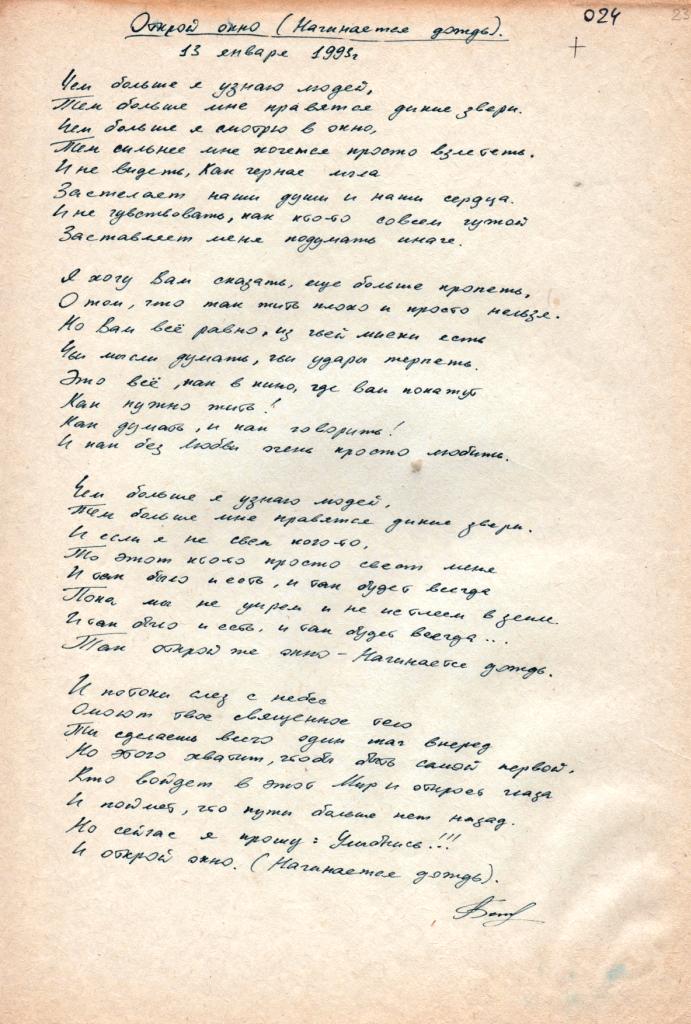 024
23
+
Открой окно (Начинается дождь).
13 января 1993г
Чем больше я узнаю людей,
Тем больше мне нравятся дикие звери.
Чем больше я смотрю в окно,
Тем сильнее мне хочется просто взлететь.
И не видеть, Как черная мгла
Застелает наши души и наши сердца.
И не чувствовать, как кто-то совсем чужой
Заставляет меня подумать иначе.
Я хочу Вам сказать, еще больше пропеть,
О том, что так жить плохо и просто нельзя.
Но Вам всё равно, из чьей миски есть
Чьи мысли думать, чьи удары терпеть.
Это всё, как в кино, где вам покажут
Как нужно жить!
Как думать, и как говорить!
И как без любви очень просто любить.
Чем больше я узнаю людей,
Тем больше мне нравятся дикие звери.
И если я не съем кого-то,
То этот кто-то просто съест меня
И так было и есть, и так будет всегда
Пока мы не умрем и не истлеем в земле
И так было и есть, и так будет всегда...
Так открой же окно - Начинается дождь.
И потоки слез с небес
Омоют твое священное тело
Ты сделаешь всего один шаг вперед
Но этого хватит, чтобы быть самой первой,
Кто войдет в этот Мир и откроет глаза
И поймет, что пути больше нет назад.
Но сейчас я прошу: Улыбнись!!!
И открой окно. (Начинается дождь).